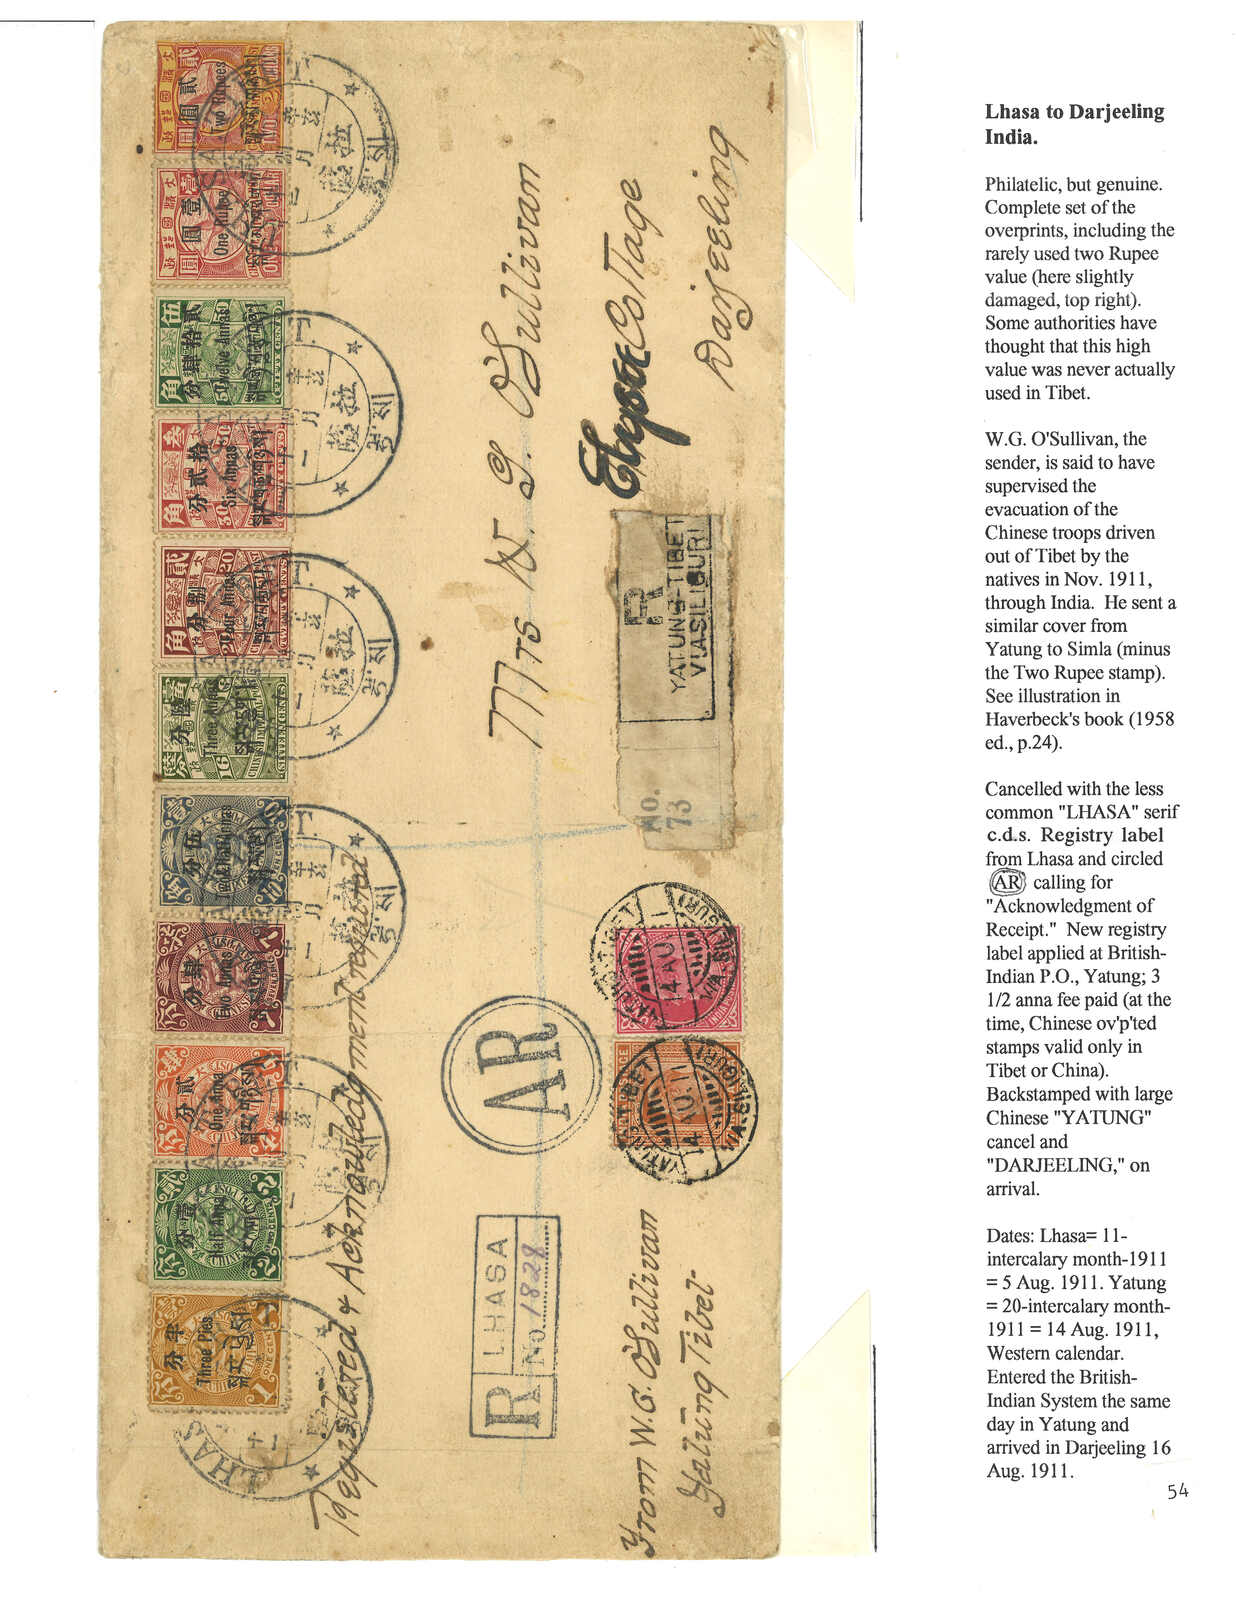 Two Rupees
貳圓
One Rupee
壹圓
Twelve Annas
貳拾肆分
Six Annas
拾貳分
Four Annas
捌分
Three Annas
陸分
伍分
Two Annas
肆分
One Anna
貳分
Half Anna
壹分
Three Pies
半分
LHASA
Registered & Acknowledgment requested
Mrs W. G. O'Sullivan
Cottage
Darjeeling
R
YATUNG-TIBET
VIA SILIGURI
No.
73
AR
R
LHASA
No. 1828
From W.G. O'Sullivan
Yatung Tibet
Lhasa to Darjeeling
India.
Philatelic, but genuine.
Complete set of the
overprints, including the
rarely used two Rupee
value (here slightly
damaged, top right).
Some authorities have
thought that this high
value was never actually
used in Tibet.
W.G. O'Sullivan, the
sender, is said to have
supervised the
evacuation of the
Chinese troops driven
out of Tibet by the
natives in Nov. 1911,
through India. He sent a
similar cover from
Yatung to Simla (minus
the Two Rupee stamp).
See illustration in
Haverbeck's book (1958
ed., p.24).
Cancelled with the less
common "LHASA" serif
c.d.s. Registry label
from Lhasa and circled
AR calling for
"Acknowledgment of
Receipt." New registry
label applied at British-
Indian P.O., Yatung; 3
1/2 anna fee paid (at the
time, Chinese ov'p'ted
stamps valid only in
Tibet or China).
Backstamped with large
Chinese "YATUNG"
cancel and
"DARJEELING," on
arrival.
Dates: Lhasa= 11-
intercalary month-1911
= 5 Aug. 1911. Yatung
= 20-intercalary month-
1911 = 14 Aug. 1911,
Western calendar.
Entered the British-
Indian System the same
day in Yatung and
arrived in Darjeeling 16
Aug. 1911.
54